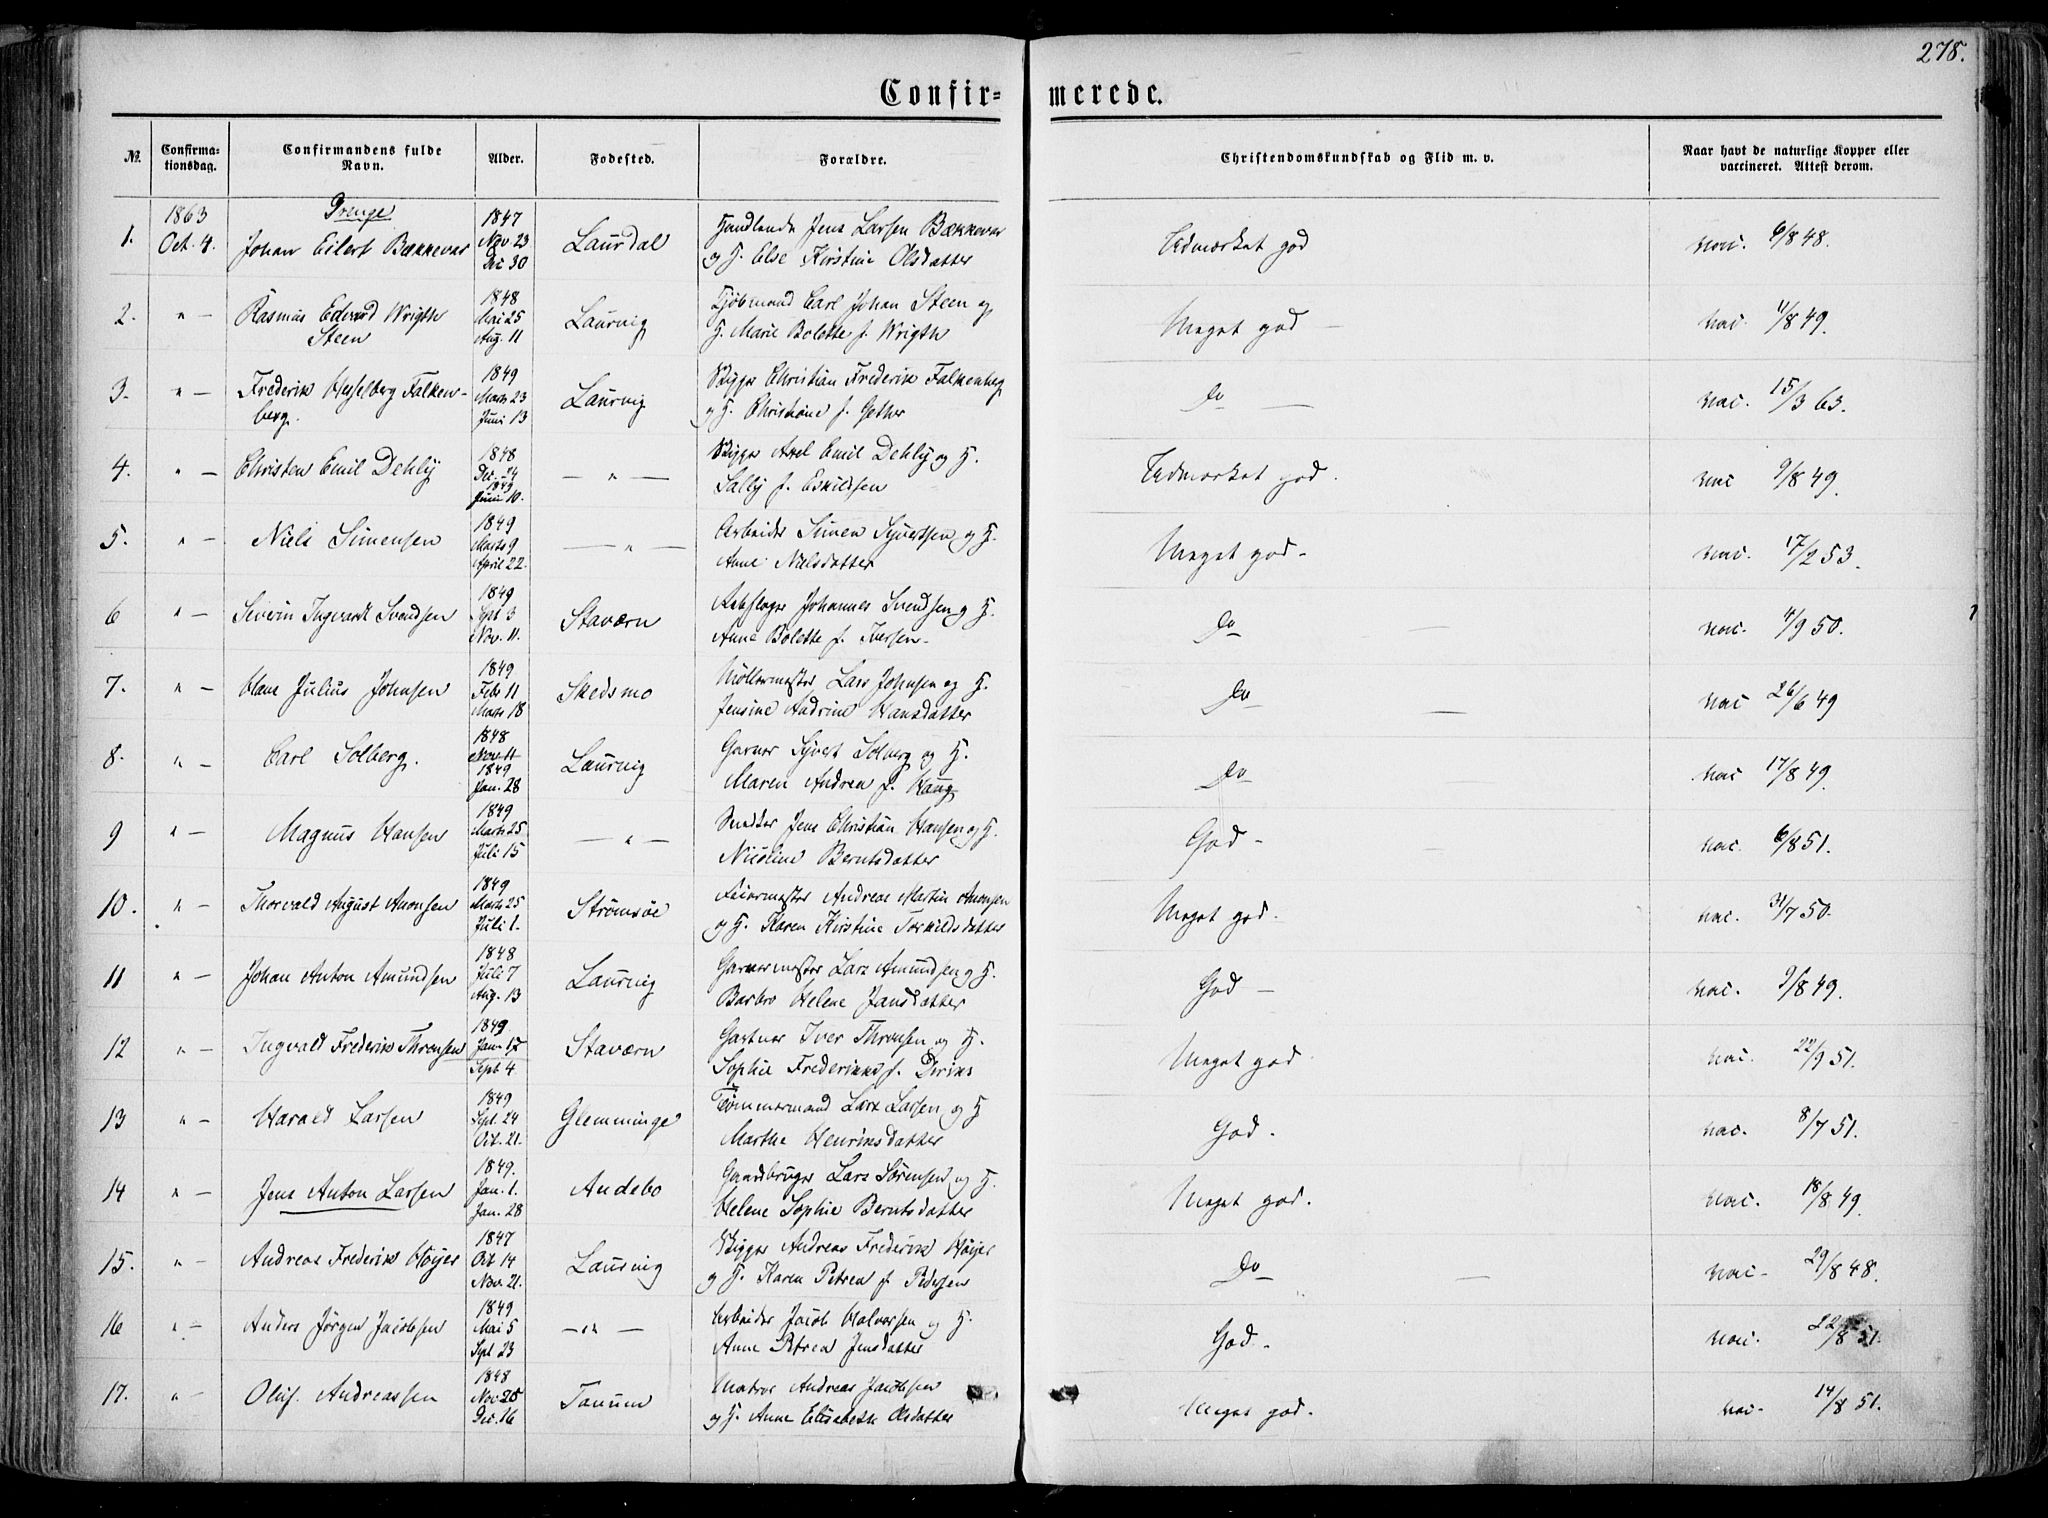 278.
Confir= merede.
No. Confirma-tionsdag. Confirmandens fulde Navn. Alder. Fodested. Forældre. Christendomskundskab og Flid m. v. Naar havt de naturlige Kopper eller vaccineret. Attest derom.
1863 Drenge 1847
1. Oct. 4. Johan Eilert Bækkevar Nov 23 Dec 30 Laurdal
Jens Larsen Bækkevar
og H. Else Kirstine Olsdatter Udmærket god vac. 6/8 48.
2. " — Rasmus Edvard Wrigth Steen 1848 Mai 25 Aug. 11 Laurvig
Carl Johan Steen og
H. Marie Bolette f. Wrigth Meget god — vac. 11/8 49.
3. " — Frederik Hesselberg Falkenberg. 1849 Marts 23 Juni 13 Laurvig
Skipper Christian Frederik Falkenberg
og H. Christiane f. Gether Do — vac. 15/3 63.
4. " — Christen Emil Dehly 1848 Dec. 24 1849 Juni 10. — " —
Skipper Axel Emil Dehly og H.
Sally f. Eskildsen Udmærket god. vac 9/8 49.
5. " — Niels Simensen 1849 Marts 9 April 22. — " —
Arbeider Simen Syvertsen og H.
Anne Nielsdatter Meget god - vac. 17/2 53.
6 " — Severin Ingvardt Svendsen 1849 Sept 3 Nov. 11. Staværn
Rebslager Johannes Svendsen og H.
Anne Bolette f. Iversen Do — vac. 4/9 50.
7. " — Hans Julius Johnsen 1849 Febr 11 Marts 18 Skedsmo
Møllermester Lars Johnsen og H.
Jensine Andrine Hansdatter Do — vac 26/6 49
8. " — Carl Solberg. 1848 Nov 11 1849 Jan. 28 Laurvig
Garver Syvert Solberg og H.
Maren Andrea f. Haug Do vac 17/8 49.
9 " — Magnus Hansen 1849 Marts 25 Juli 15 — " —
Snedker Jens Christian Hansen og H.
Nicoline Berntsdatter God - vac. 6/8 51.
10. " — Thorvald August Amonsen 1849 Marts 25 Juli 1. Strømsöe
Feiermester Andreas Martin Amonsen
og H. Karen Kirstine Torkildsdatter Meget god. vac. 31/7 50.
11 " — Johan Anton Amundsen 1848 Juli 7 Aug. 13 Laurvig
Garvermester Lars Amundsen og H.
Barbro Helene Jansdatter God — vac. 9/8 49.
12 " — Ingvald Frederik Thronsen 1849. Jan. 17 Sept 4 Staværn
Gartner Iver Thronsen og H.
Sophie Frederikke f. Diriks Meget god vac. 22/9 51.
13 " — Harald Larsen 1849 Sept. 24 Oct. 21. Glemminge
Tømmermand Lars Larsen og H
Marthe Henriksdatter God. vac. 8/7 51.
14 " — Jens Anton Larsen 1849. Jan. 1. Jan. 28 Andebo
Gaardbruger Lars Sørensen og H.
Helene Sophie Berntsdatter Meget god. vac. 18/8 49.
15. " — Andreas Frederik Høyer 1847 Oct 14 Nov. 21. Laurvig
Skipper Andreas Frederik Høyer
og H. Karen Petrea f. Pedersen Do — vac - 29/8 48.
16 " — Anders Jörgen Jacobsen 1849 Mai 5 Sept. 23 — " —
Arbeider Jacob Halvorsen og H.
Anne Petrea Jensdatter God - vac. 22/8 51.
17. " — Oluf. Andreassen 1848 Nov 25 Dec. 16 Tanum
Matros Andreas Jacobsen
og H. Anne Elisabeth Olsdatter Meget god. vac - 14/8 51.